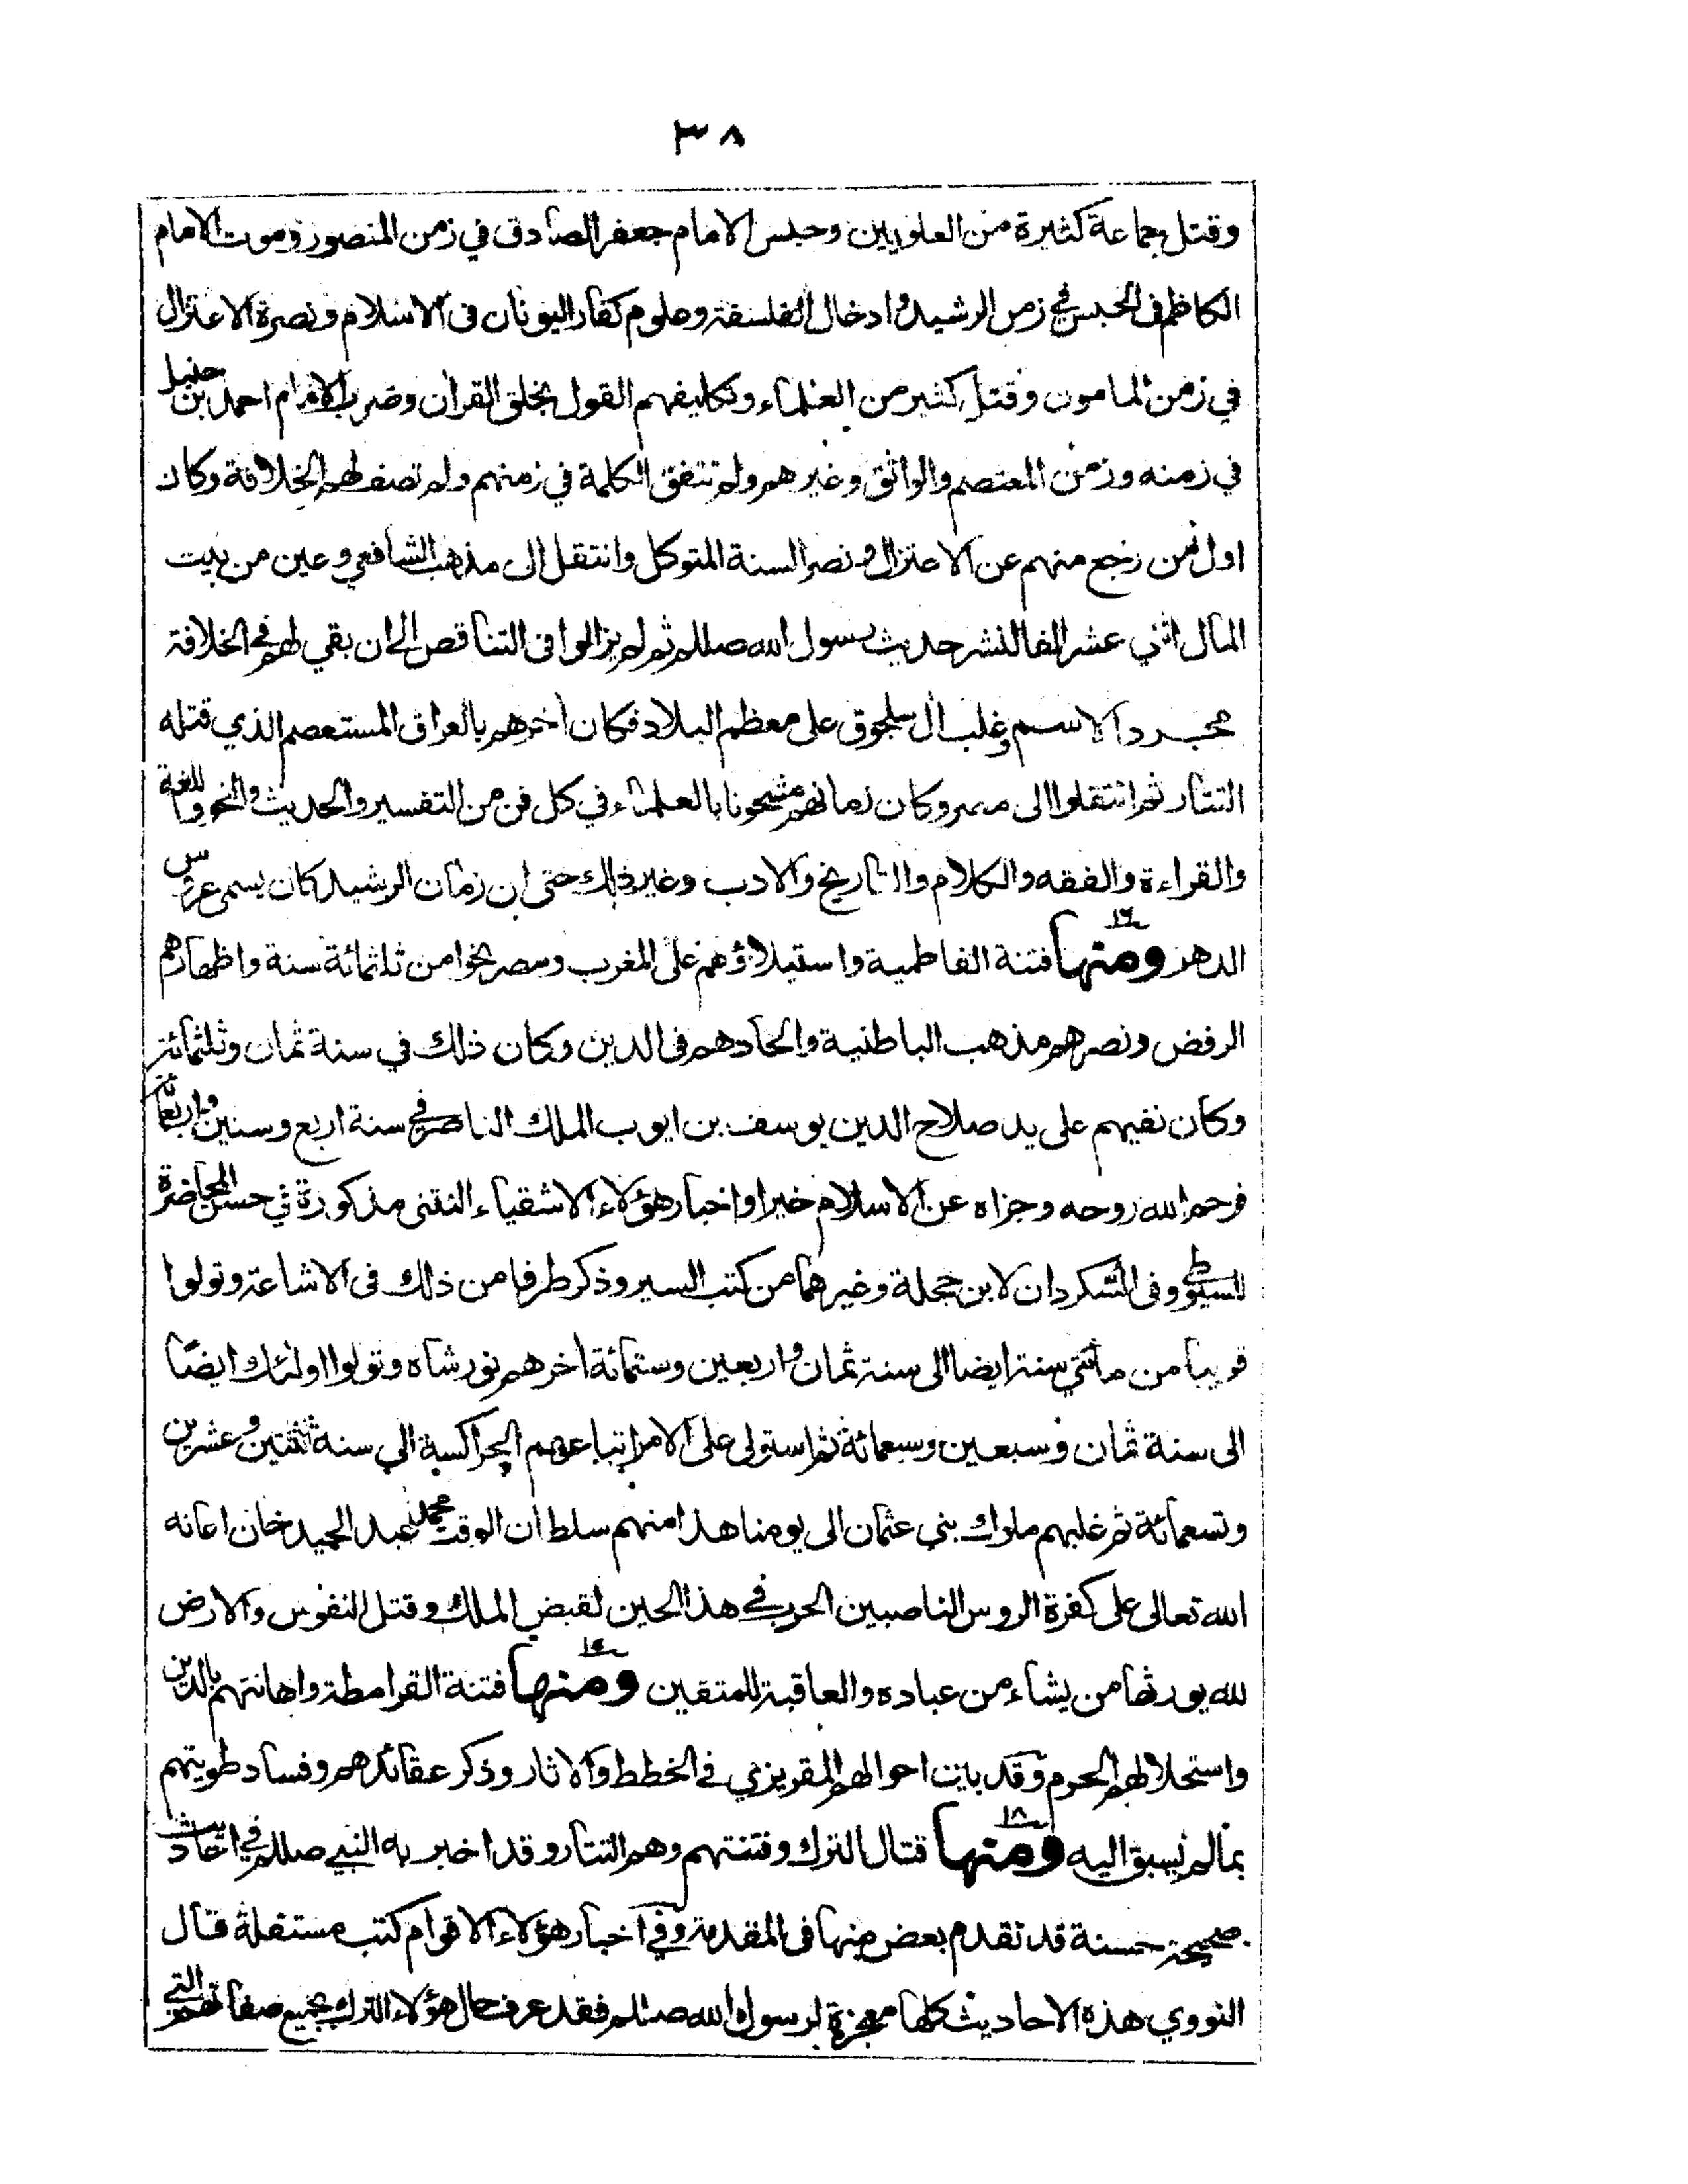 ٣٨
وقتل جماعة كثيرة من العلويين وحبس الامام جعفر الصادق في زمن المنصور وموت الامام
الكاظم في الحبس في زمن الرشيد وادخال الفلسفة وعلوم كفار اليونان في الاسلام ونصرة الاعتزال
في زمن المامون وقتل كثير من العلماء وتكليفهم القول بخلق القران وضرب الامام احمد بن حنبل
في زمنه وزمن المعتصم والواثق وغيرهم ولم تتفق الكلمة في زمنهم ولم تصف لهم الخلافة وكان
اول من رجع منهم عن الاعتزال ونصر السنة المتوكل وانتقل الى مذهب الشافعي وعين من بيت
المال اثني عشر الفا لنشر حديث رسول الله صللم ثم لم يزالوا في التناقص الى ان بقي لهم في الخلافة
مجرد الاسم وغلب ال سلجوق على معظم البلاد فكان اخرهم بالعراق المستعصم الذي قتله
التتار ثم انتقلوا الى مصر وكان زمانهم مشحونا بالعلماء في كل فن من التفسير والحديث والنحو واللغة
والقراءة والفقه والكلام والتاريخ والادب وغير ذلك حتى ان زمان الرشيد كان يسمى عروس
الدهر ومنها ١٦ فتنة الفاطمية واستيلاؤهم على المغرب ومصر نحوا من ثلثمائة سنة واظهارهم
الرفض ونصرهم مذهب الباطنية والحادهم في الدين وكان ذلك في سنة ثمان وثلثمائة
وكان نفيهم على يد صلاح الدين يوسف بن ايوب الملك الناصر في سنة اربع وستين واربعمائة
فرحم الله روحه وجزاه عن الاسلام خيرا واخبار هؤلاء الاشقياء النتنى مذكورة في حسن المحاضرة
للسيوطي وفي السكردان لابن حجلة وغيرهما من كتب السير وذكر طرفا من ذلك في الاشاعة وتولوا
قريبا من مائتي سنة ايضا الى سنة ثمان واربعين وستمائة اخرهم نورشاه وتولوا اولئك ايضا
الى سنة ثمان وسبعين وسبعمائة ثم استولى على الامر اتباعهم الجراكسة الى سنة ثنتين وعشرين
وتسعمائة ثم غلبهم ملوك بني عثمان الى يومنا هذا منهم سلطان الوقت محمد عبد الحميد خان اعانه
الله تعالى على كفرة الروس الناصبين الحرب في هذا الحين لقبض الملك وقتل النفوس والارض
لله يورثها من يشاء من عباده والعاقبة للمتقين ومنها فتنة القرامطة واهانتهم بالدين
واستحلالهم الحرم وقد باين احوالهم المقريزي في الخطط والاثار وذكر عقائدهم وفساد طويتهم
بما لم يسبق اليه ومنها ١٨ قتال الترك وفتنتهم وهم التتار وقد اخبر به النبي صللم في احاديث
صحيحة حسنة قد تقدم بعض منها في المقدمة وفي اخبار هؤلاء الاقوام كتب مستقلة قال
النووي هذه الاحاديث كلها معجزة لرسول الله صللم فقد عرف حال هؤلاء الترك بجميع صفاتهم التي